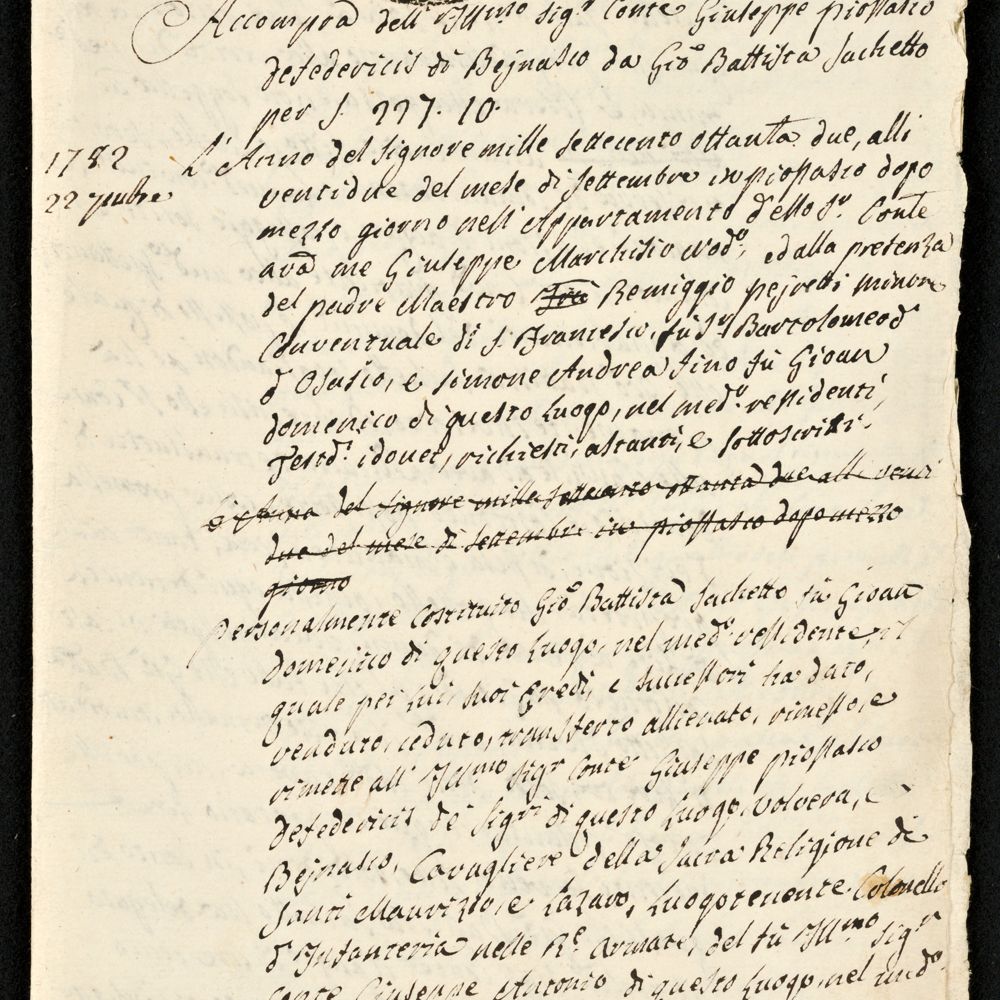 Accompra dell'Ill.mo Sig.r Conte Giuseppe piossasco
defedericis di Bejnasco da Gio Battista Sachetto
per £. 227. 10.
1782
22 7mbre
L'Anno del Signore mille settecento ottanta due, alli
ventidue del mese di Settembre in piossasco dopo
mezzo giorno nell'Appartamento d'ello S.r Conte
avã me Giuseppe Marchisio Nod.º, ed alla presenza
del padre Maestro Remiggio pejretti minore
Conventuale di S. Francesco, fù S.r Bartolomeo d
d'Osasio, e Simone Andrea Sino fù Gioan
domenico di questo Luogo, nel med.º residenti,
Testd. idonei, richiesti, astanti, e sottoscritti.
L'Anno del Signore mille settecento ottanta due alli venti
due del mese di Settembre in piossasco dopo mezzo
giorno
personalmente Costituito Gio Battista Sachetto fù Gioan
domenico di questo Luogo, nel med.º residente, il
quale per lui, suoi Eredi, e successori ha dato,
venduto, ceduto, transferto allienato, rimesso, e
rimette all'Ill.mo Sig.r Conte Giuseppe piossasco
defedericis de' Sig.ri di questo Luogo, Volvera, e
Bejnasco, Cavagliere della Sacra Religione di
Santi Maurizio, e Lazaro, Luogotenente Colonello
d'Infanteria nelle R.e Armate, del fù Ill.mo Sig.r
Conte Giuseppe Antonio di questo Luogo, nel med.º